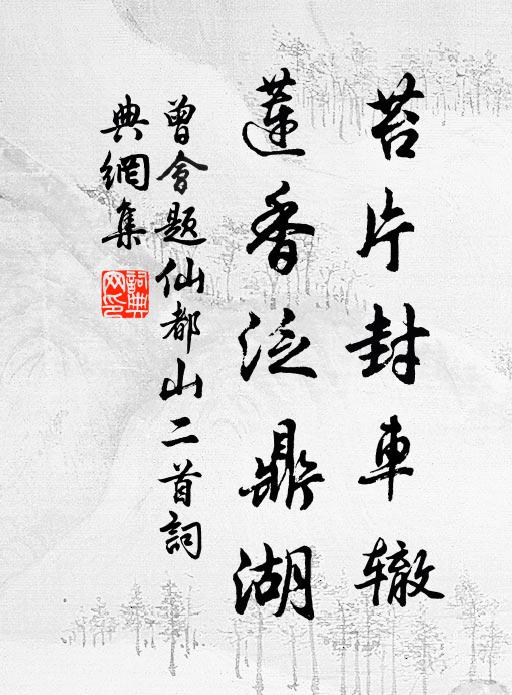 苔片封車辙
蓮香泛鼎湖
曾會题仙都山二首詞
典網集
詞典
网印